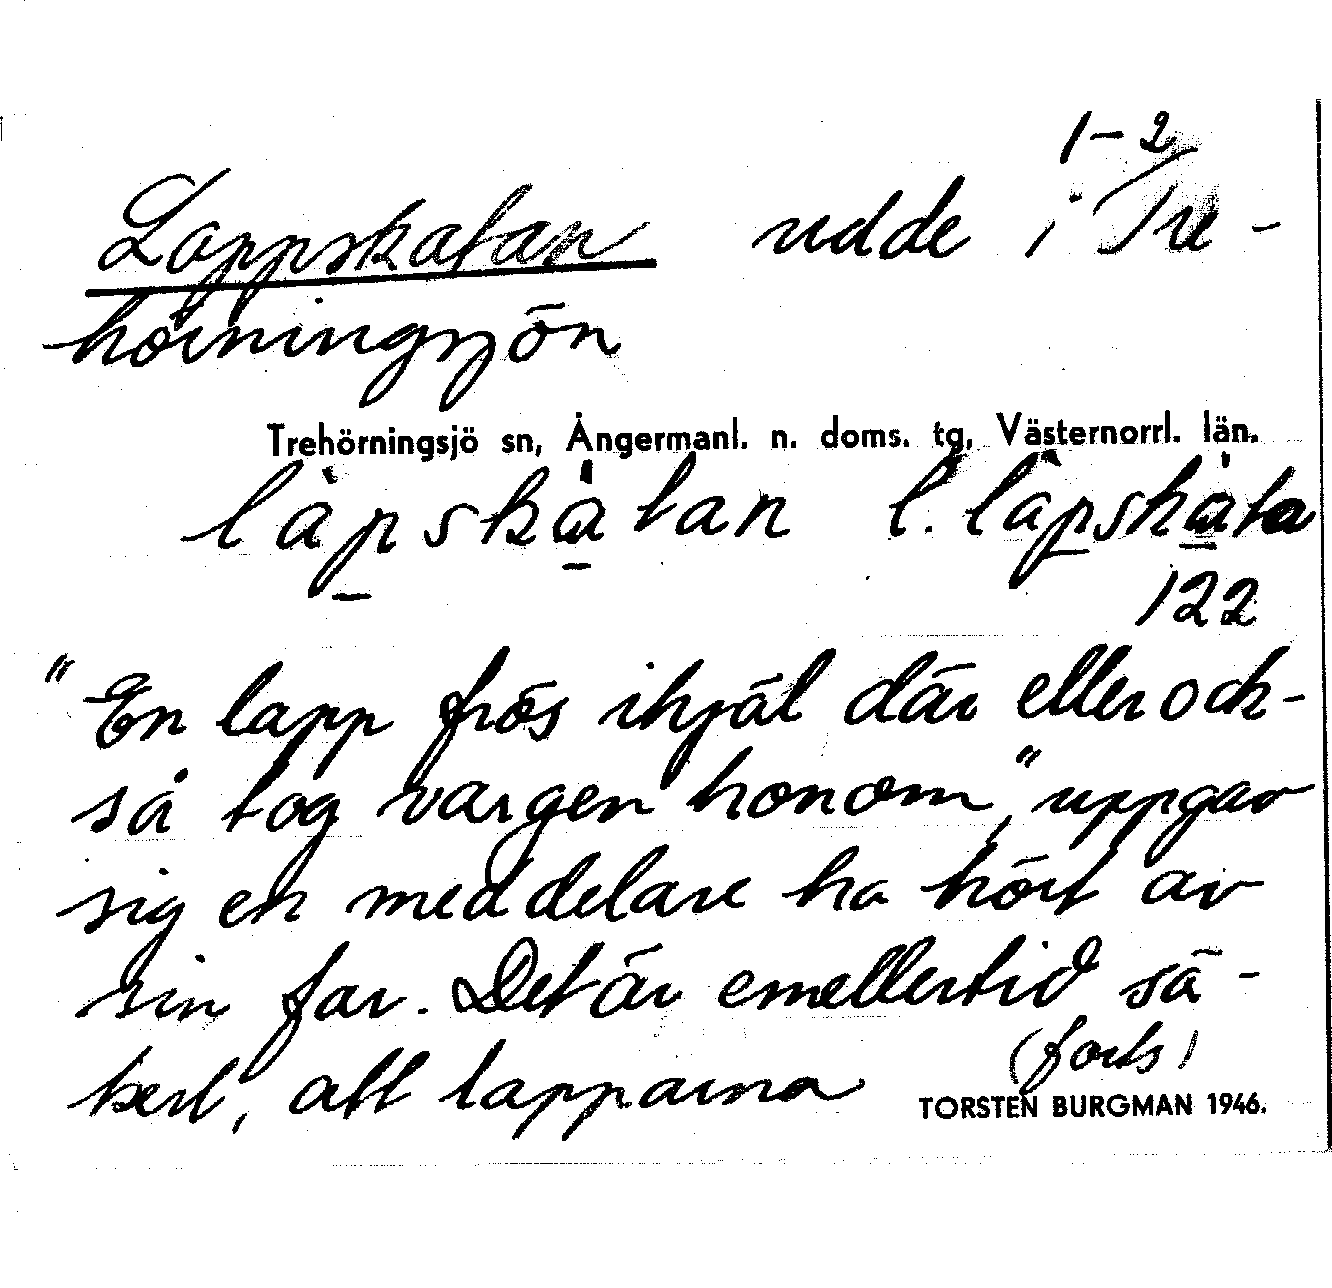 1-2
Lappskatan udde i Tre-
hörningsjön
Trehörningsjö sn, Ångermanl. n. doms. tg, Västernorrl. län.
làp̲skå̲tan l. làp̲skå̲ta
122
"En lapp frös ihjäl där eller ock-
så tog vargen honom," uppgav
sig en meddelare ha hört av
sin far. Det är emellertid sä-
kert, att lapparna (forts)
TORSTEN BURGMAN 1946.